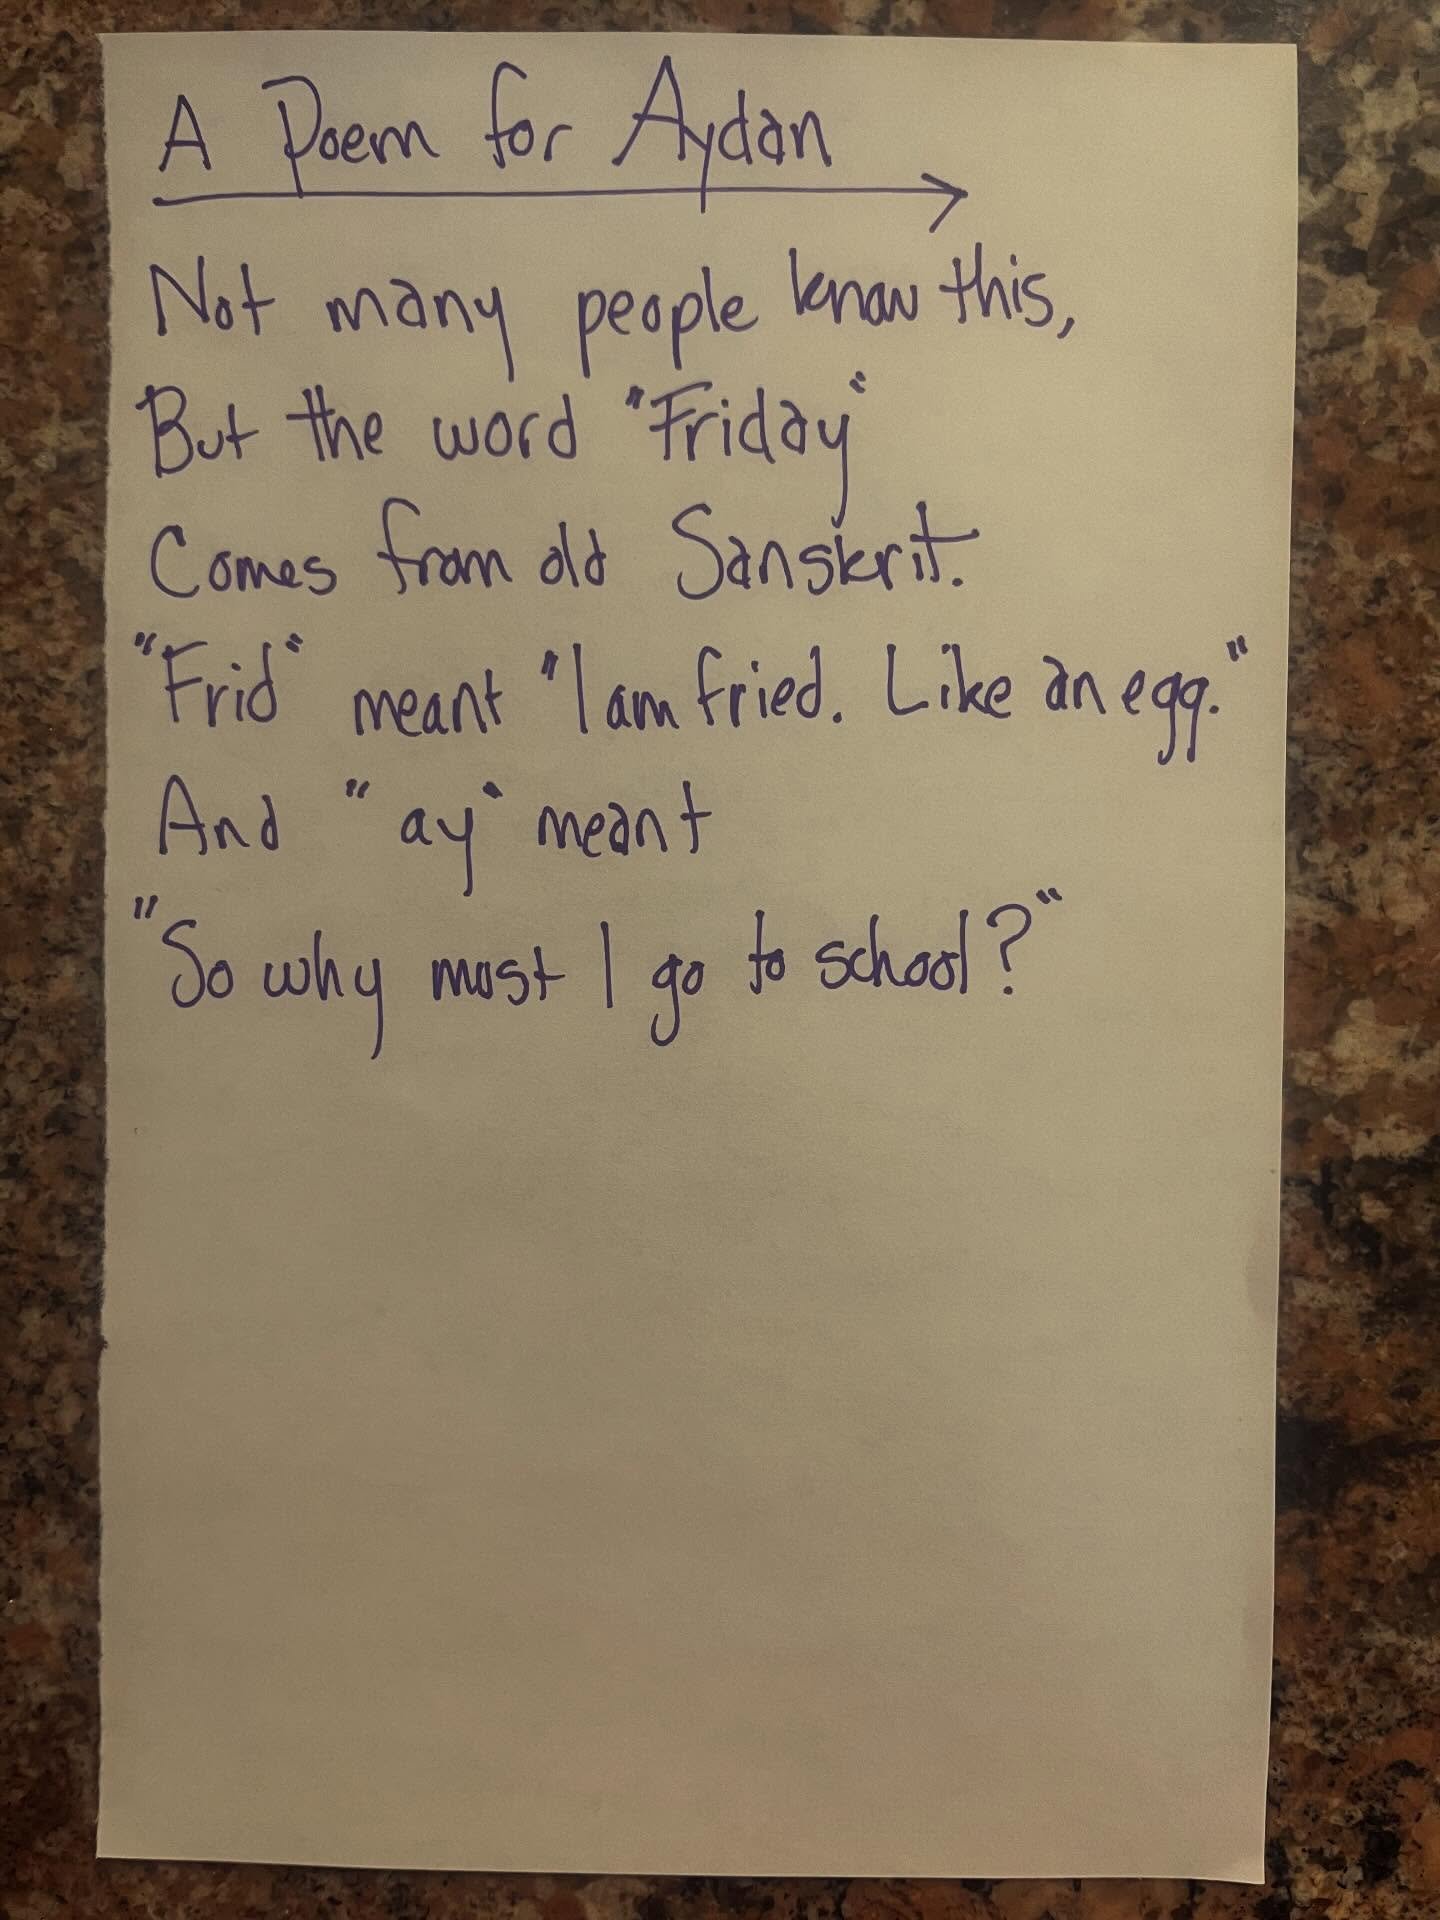 A Poem for Aydan
Not many people know this,
But the word "Friday"
Comes from old Sanskrit.
"Frid" meant "I am fried. Like an egg."
And "ay" meant
"So why must I go to school?"